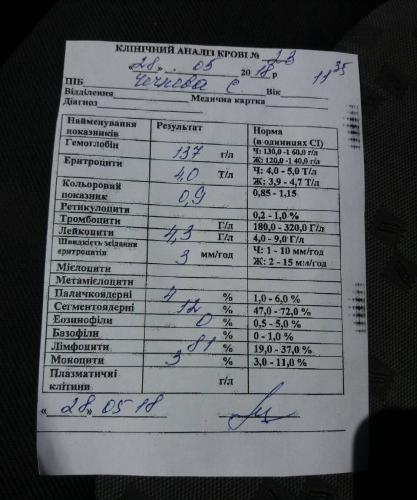 КЛІНІЧНИЙ АНАЛІЗ КРОВІ № 23
«28» 05 2018 р 11 35
ПІБ С. Вік
Відділення Медична картка
Діагноз
Найменування показників Результат Норма (в одиницях СІ)
Гемоглобін 137 г/л Ч: 130,0 -160,0 г/л
Ж: 120,0 -140,0 г/л
Еритроцити 4,0 Т/л Ч: 4,0 - 5,0 Т/л
Ж: 3,9 - 4,7 Т/л
Кольоровий показник 0,9 0,85 - 1,15
Ретикулоцити 0,2 - 1,0 %
Тромбоцити Г/л 180,0 - 320,0 Г/л
Лейкоцити 4,3 Г/л 4,0 - 9,0 Г/л
Швидкість зсідання еритроцитів 3 мм/год Ч: 1 - 10 мм/год
Ж: 2 - 15 мм/год
Мієлоцити
Метамієлоцити
Паличкоядерні 4 % 1,0 - 6,0 %
Сегментоядерні 12 % 47,0 - 72,0 %
Еозинофіли 0 % 0,5 - 5,0 %
Базофіли % 0 - 1,0 %
Лімфоцити 81 % 19,0 - 37,0 %
Моноцити 3 % 3,0 - 11,0 %
Плазматичні клітини г/л
«28» 05 18